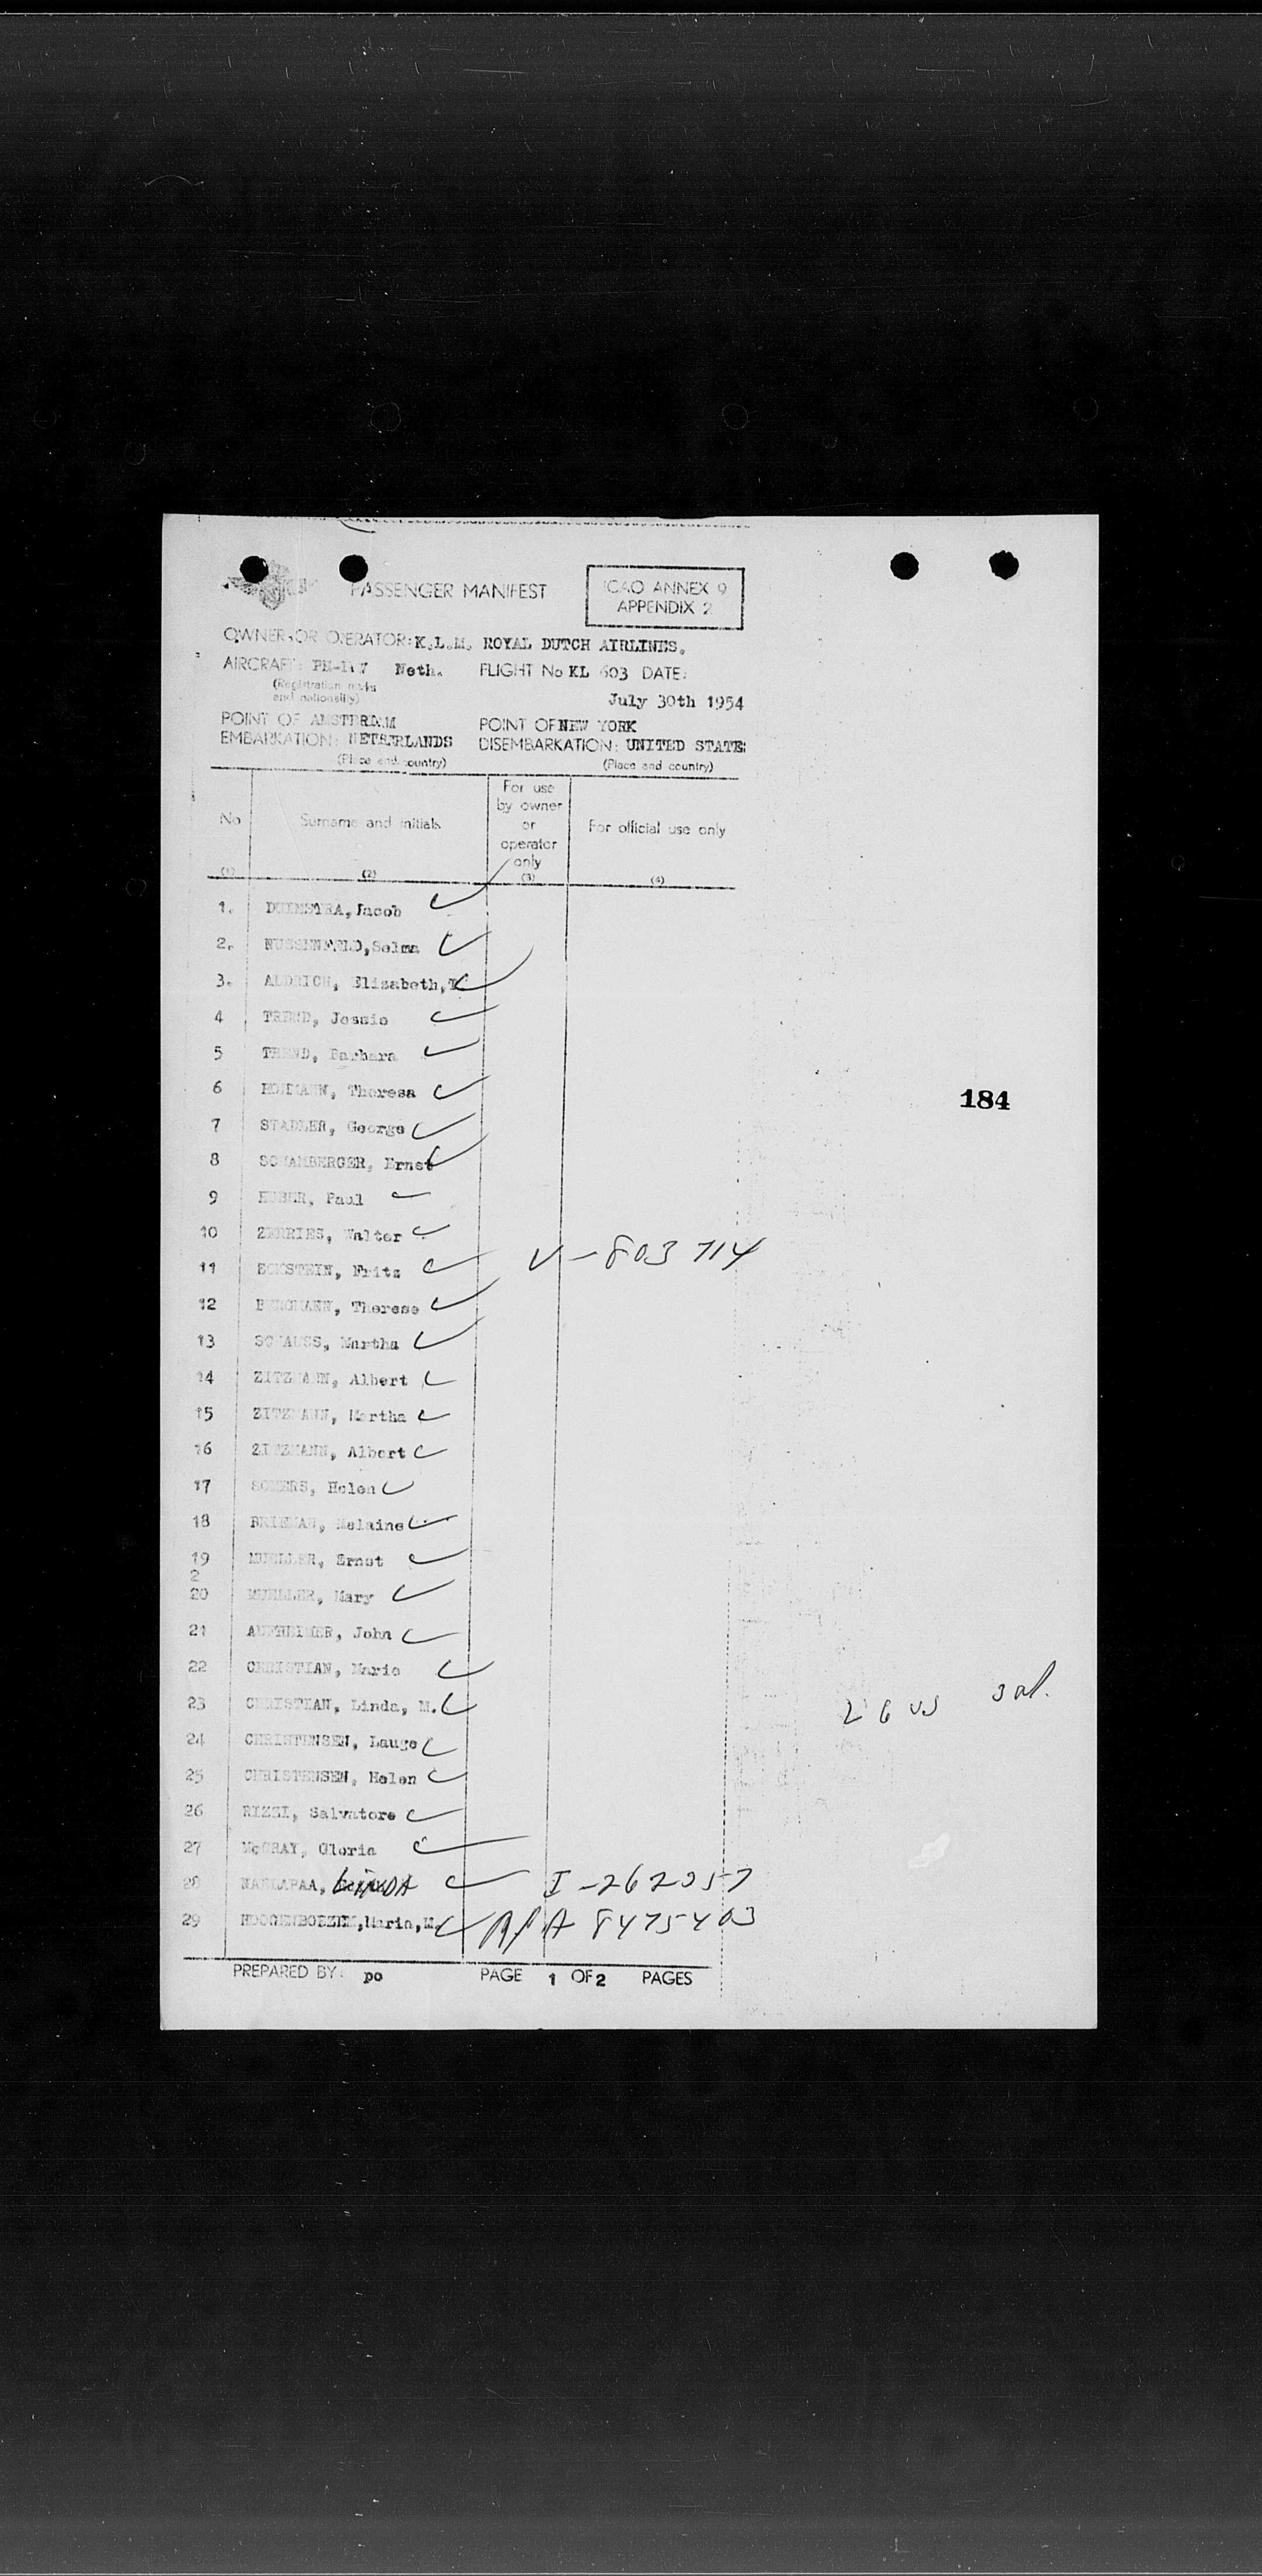 PASSENGER MANIFEST
ICAO ANNEX 9
APPENDIX 2
OWNER OR OPERATOR: K.L.M. ROYAL DUTCH AIRLINES.
AIRCRAFT: Neth. FLIGHT No KL 603 DATE:
(Registration marks
and nationality)
July 30th 1954
POINT OF AMSTERDAM POINT OF NEW YORK
EMBARKATION: NETHERLANDS DISEMBARKATION: UNITED STATE
(Place and country) (Place and country)
No Surname and initials For use by owner or operator only For official use only
(1) (2) (3) (4)
1. Jacob
2. Selma
3. ALDRICH, Elizabeth,
4 TREND, Jessie
5 TREND, Barbara
6 Theresa
7 STADLER, George
8 SCHAMBERGER, Ernst
9 HUBER, Paul
10 ZERRIES, Walter
11 ECKSTEIN, Fritz V-803714
12 Therese
13 Martha
14 ZITZMANN, Albert
15 ZITZMANN, Martha
16 ZITZMANN, Albert
17 SOMERS, Helen
18
19 MUELLER, Ernst
2
20 MUELLER, Mary
21 John
22 CHRISTIAN, Marie
23 CHRISTIAN, Linda, M.
24 CHRISTENSEN, Lauge
25 CHRISTENSEN, Helen
26 RIZZI, Salvatore
27 McCRAY, Gloria
28 LINDA
29 Maria, M.
184
26 US 3 al.
PREPARED BY: po PAGE 1 OF 2 PAGES